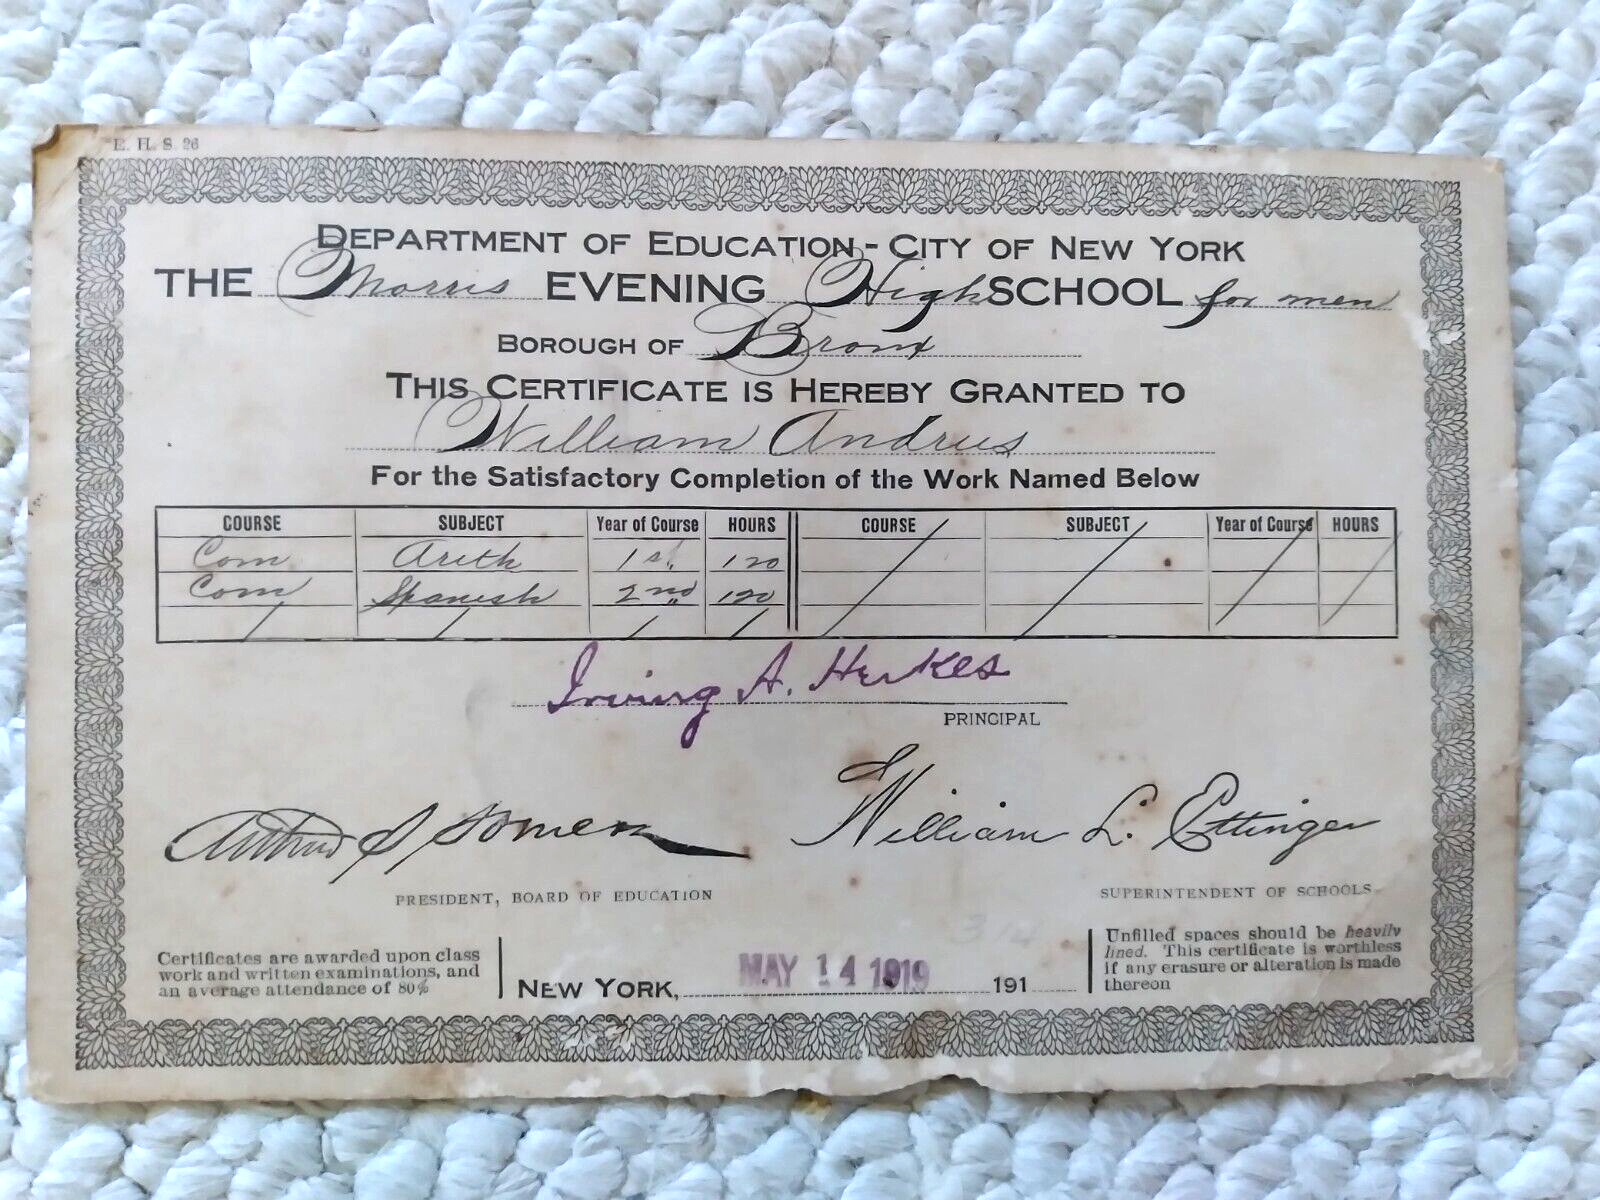 E. H. S. 26
DEPARTMENT OF EDUCATION - CITY OF NEW YORK
THE Morris EVENING High SCHOOL for men
BOROUGH OF Bronx
THIS CERTIFICATE IS HEREBY GRANTED TO
William Andrus
For the Satisfactory Completion of the Work Named Below
COURSE SUBJECT Year of Course HOURS COURSE SUBJECT Year of Course HOURS
Com Arith 1st 120
Com Spanish 2nd 120
Irving A. Heikes
PRINCIPAL
Arthur S Somers William L. Ettinger
PRESIDENT, BOARD OF EDUCATION SUPERINTENDENT OF SCHOOLS
Certificates are awarded upon class
work and written examinations, and
an average attendance of 80%
NEW YORK, MAY 14 1919 191
Unfilled spaces should be heavily
lined. This certificate is worthless
if any erasure or alteration is made
thereon